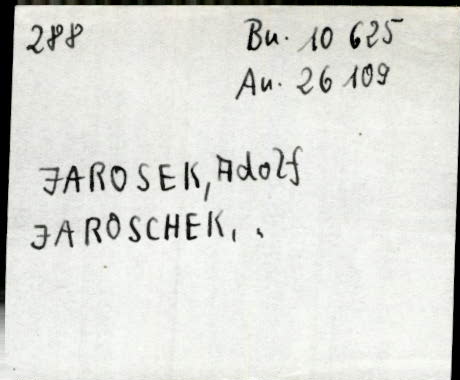 288
Bu. 10 625
Au. 26 109
JAROSEK, Adolf
JAROSCHEK, .